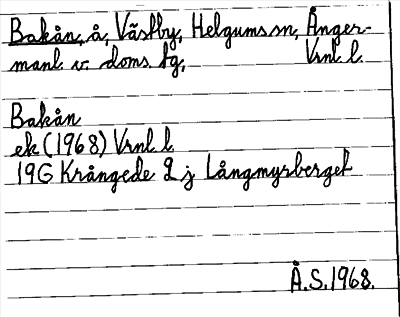 Bakån, å, Västby, Helgums sn, Ånger-
manl. v. doms. tg, Vrnl. l.
Bakån
ek (1968) Vrnl l
19G Krångede 2 j Långmyrberget
Å.S. 1968.